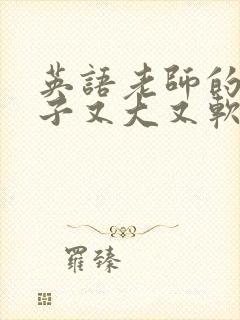 英語老師的
子又大又軟
羅臻